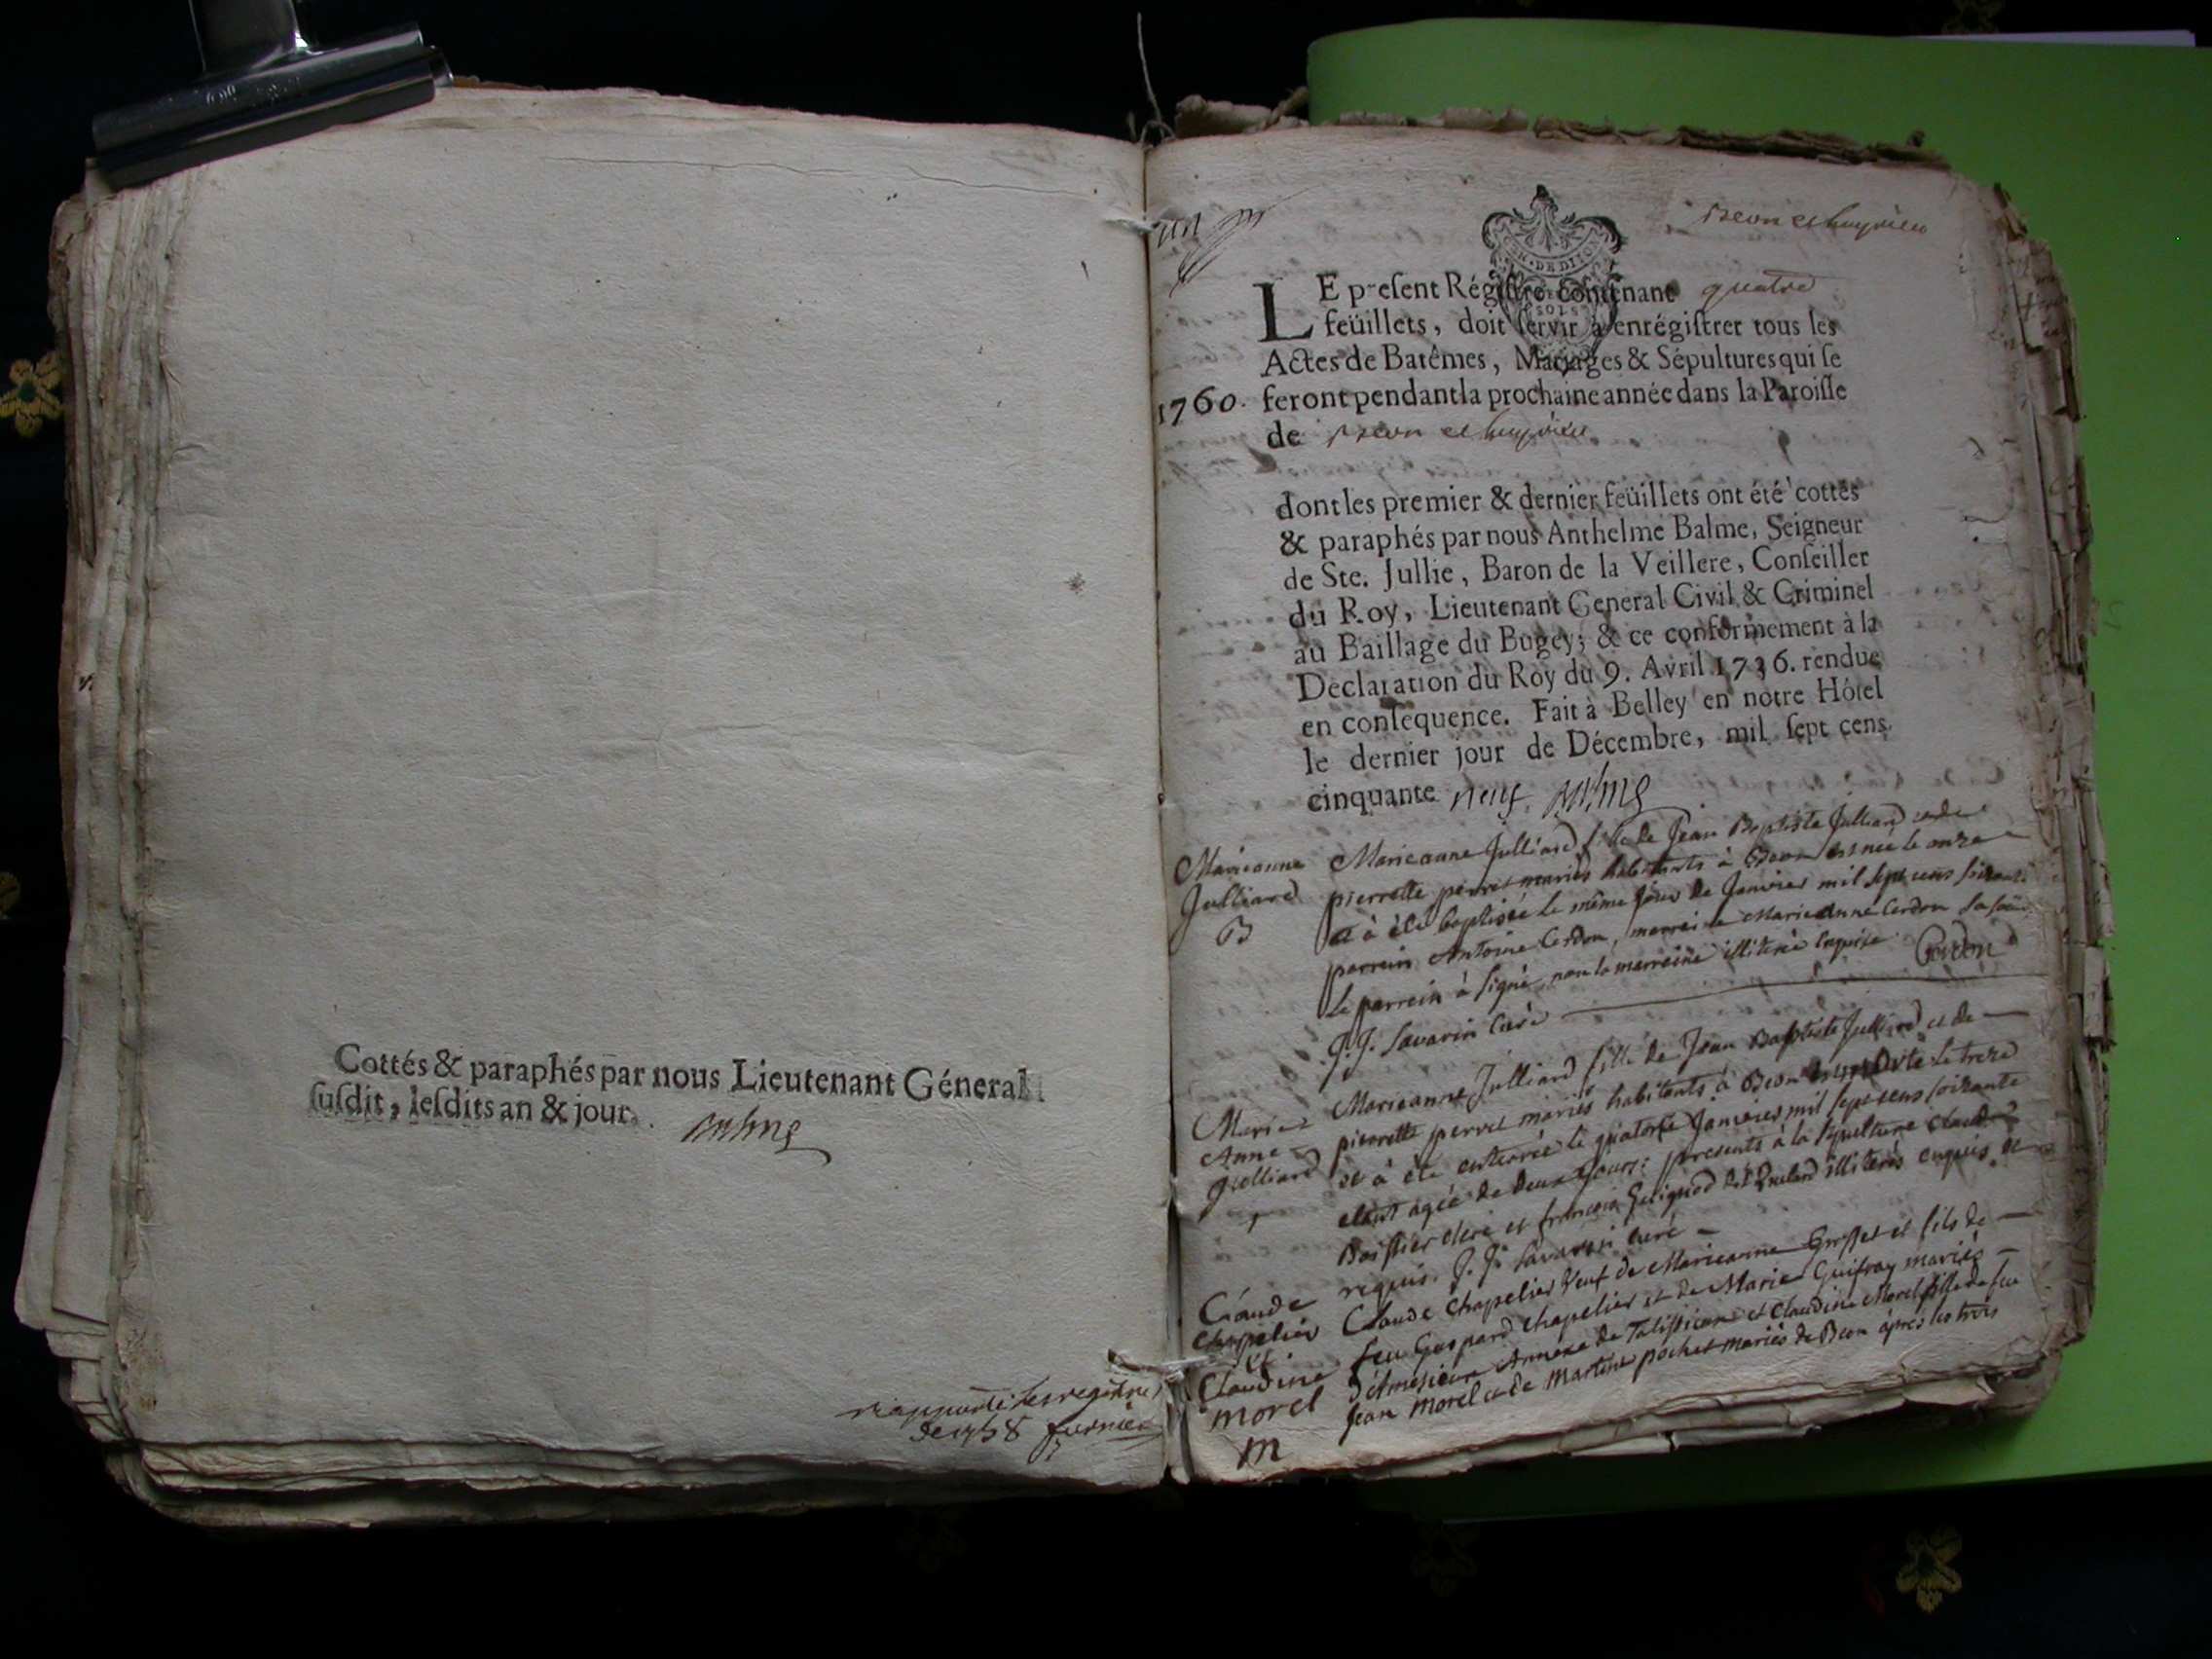 Cottés & paraphés par nous Lieutenant Géneral
ſuſdit, leſdits an & jour. Balme
rapporté les regitres
de 1758 fournier
un
Beon et luyrieu
GEN. DE DIJON
SOLS
LE preſent Régiſtre contenant quatre
feüillets, doit ſervir à enrégiſtrer tous les
Actes de Batêmes, Mariages & Sépultures qui ſe
1760. feront pendant la prochaine année dans la Paroiſſe
de Beon et luyrieu
dont les premier & dernier feüillets ont été cottés
& paraphés par nous Anthelme Balme, Seigneur
de Ste. Jullie, Baron de la Veillere, Conſeiller
du Roy, Lieutenant General Civil & Criminel
au Baillage du Bugey; & ce conformement à la
Declaration du Roy du 9. Avril 1736. rendue
en conſequence. Fait à Belley en notre Hôtel
le dernier jour de Décembre, mil ſept cens
cinquante neuf. Balme
Marieanne
Julliard
B
Marieanne Julliard fille de Jean Baptiste Julliard et de
pierrette perret mariés habitants à Beon est neé le onze
et à été baptisée le même jour de Janvier mil sept cens soixante
parrein Antoine Cordon, marreine Marieanne Cordon sa soeur
le parrein à signé non la marreine illiterée enquise Cordon
J. J. Savarin Curé
Marie
Anne
Julliard
Marieanne Julliard fille de Jean Baptiste Julliard et de
pierrette perret mariés habitants à Beon est morte le treze
et à été enterrée le quatorse Janvier mil sept cens soixante
etant agée de deux jours: presents à la sepulture Claude
Boissier clerc et françois Guignod dit illiterés enquis et
requis. J. J. Savarin curé
Claude
chapelier
et
Claudine
morel
m
Claude Chapelier Veuf de Marieanne Grosset et fils de
feu Gaspard Chapelier et de Marie Guifray mariés
d'Ameisieux Annexe de Talissieux et Claudine Morel fille de feu
Jean Morel et de Martine pochet mariés de Beon après les trois